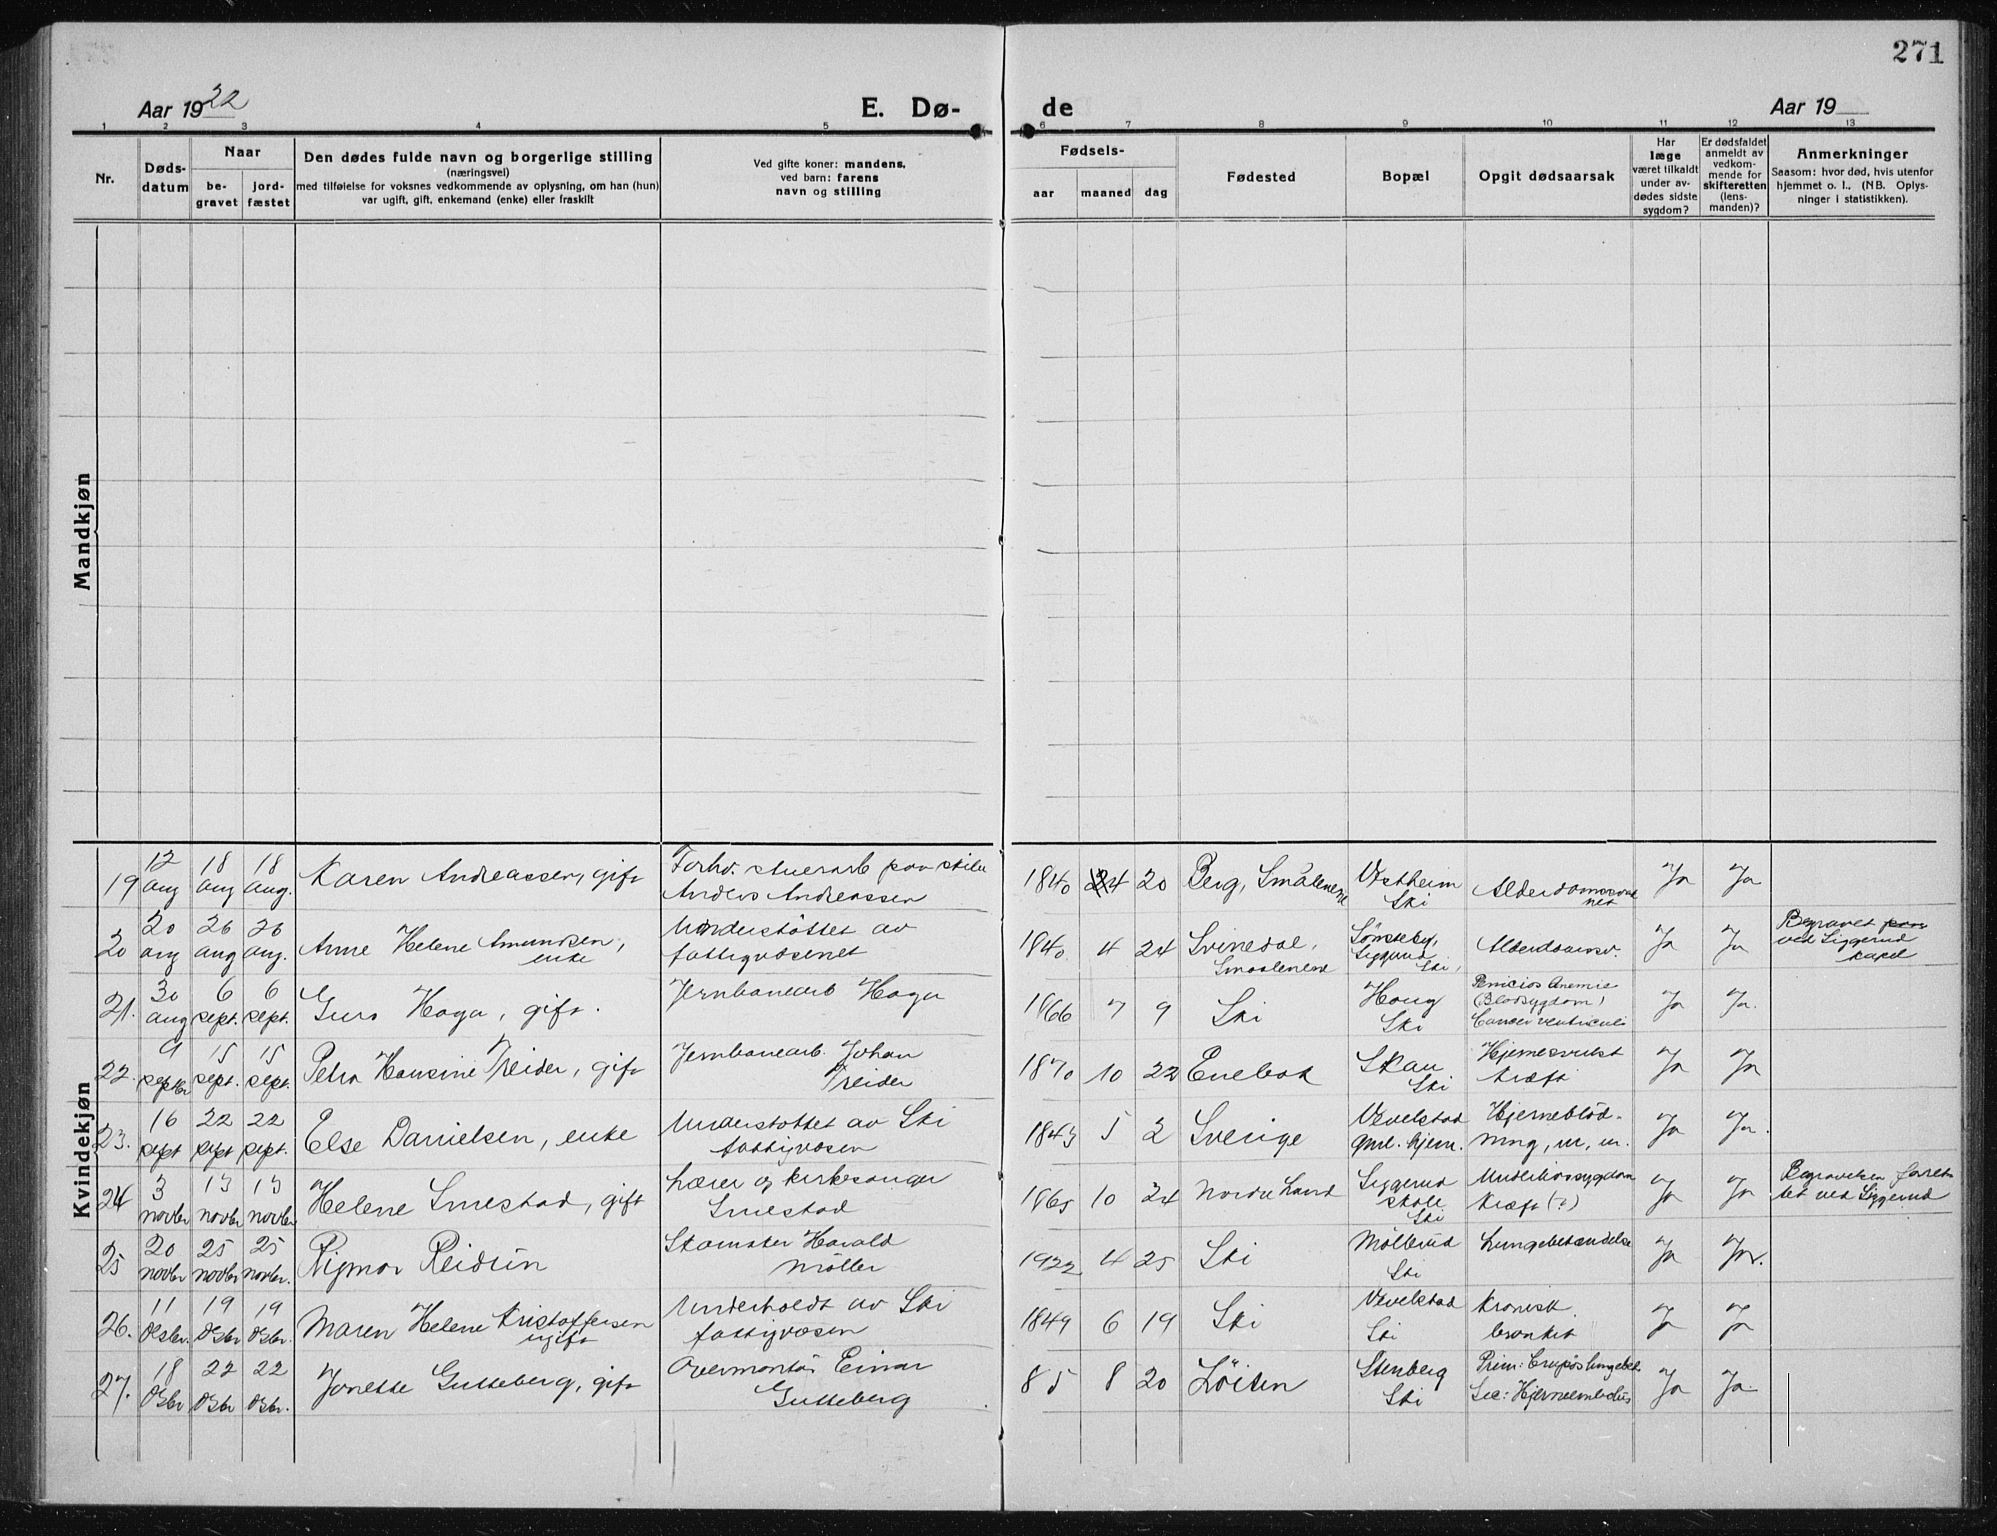 271
Aar 1922
E. Dø-
de
Aar 19
1 2 3 4 5 6 7 8 9 10 11 12 13
Nr.
Døds-
datum
Naar
be-
gravet
jord-
fæstet
Den dødes fulde navn og borgerlige stilling
(næringsvei)
med tilføielse for voksnes vedkommende av oplysning, om han (hun)
var ugift, gift, enkemand (enke) eller fraskilt
Ved gifte koner: mandens,
ved barn: farens
navn og stilling
Fødsels-
aar
maaned
dag
Fødested
Bopæl
Opgit dødsaarsak
Har
læge
været tilkaldt
under av-
dødes sidste
sygdom?
Er dødsfaldet
anmeldt av
vedkom-
mende for
skifteretten
(lens-
manden)?
Anmerkninger
Saasom: hvor død, hvis utenfor
hjemmet o. l., (NB. Oplys-
ninger i statistikken).
Mandkjøn
Kvindekjøn
19 12 aug 18 aug 18 aug. Karen Andreassen, gift
Forhv.
Anders Andreassen
1840 4 20 Berg, Smålenene
Vestheim
Ski
Ja Ja
20 20 aug 26 aug 26 aug. Anne Helene Amundsen,
enke
Understöttet av
fattigvæsenet
1840. 4 24 Svinedal,
Smaalenene
Siggerud
Ski,
Alderdomsv.
Ja Ja
Begravet paa
ved Siggerud
kapel
21. 30 aug 6 sept. 6 sept. Guro Haga, gift.
Jernbanearb Haga
1866 7 9 Ski
Haug
Ski
Pernicios Anemie
(Blodsygdom)
Cancer ventriculi
Ja Ja.
22. 9 septbr 15 sept. 15 sept. Petra Hansine Treider, gift
Jernbanearb. Johan
Treider
1870 10 22 Enebak
Skau
Ski
Hjernesvulst
kræft
Ja Ja
23. 16 sept 22 sept 22 sept. Else Danielsen, enke
Understottet av Ski
fattigvæsen
1843 5 2 Sverige
Vevelstad
gml. hjem.
Hjerneblöd-
ning, m. m.
Ja Ja.
24 3 novbr 13 novbr 13 novbr Helene Smestad, gift
Lærer og kirkesanger
Smestad
1865 10 24 Nordre Land
Siggerud
skole
Ski
Underlivssygdom
kræft (?)
Ja Ja
Begravelsen forret-
tet ved Siggerud
25 20 novbr 25 novbr 25 novbr. Rigmor Reidun
Harald
Möller
1922 4 25 Ski
Möllerud
Ski
Lungebetændelse
Ja Ja.
26. 11 desbr. 19 desbr 19 desbr. Maren Helene Kristoffersen
ugift
Underholdt av Ski
fattigvæsen
1849 6 19 Ski
Vevelstad
Ski
Kronisk
bronkit
Ja Ja
27. 18 desbr 22 desbr 22 desbr. Jonette Gutteberg, gift
Overmontör Einar
Gutteberg
85 8 20 Löiten
Stenberg
Ski
Prim: Crupös lungebet
Sec: Hjerneembolus
Ja Ja.